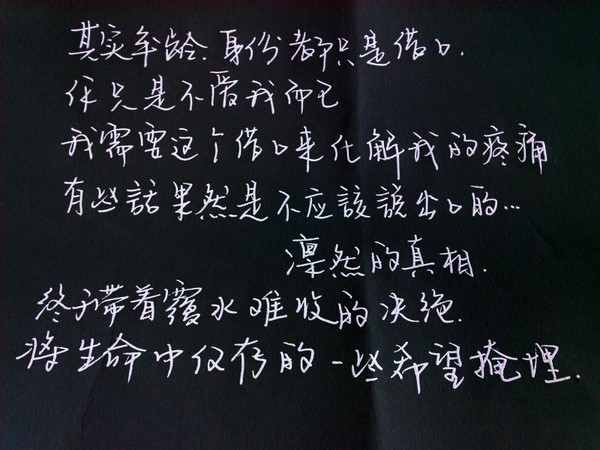 其实年龄.身份都只是借口.
你只是不爱我而已
我需要这个借口来化解我的疼痛
有些話果然是不应該說出口的…
凛然的真相.
终于带着覆水难收的决绝.
将生命中仅存的一些希望掩埋.